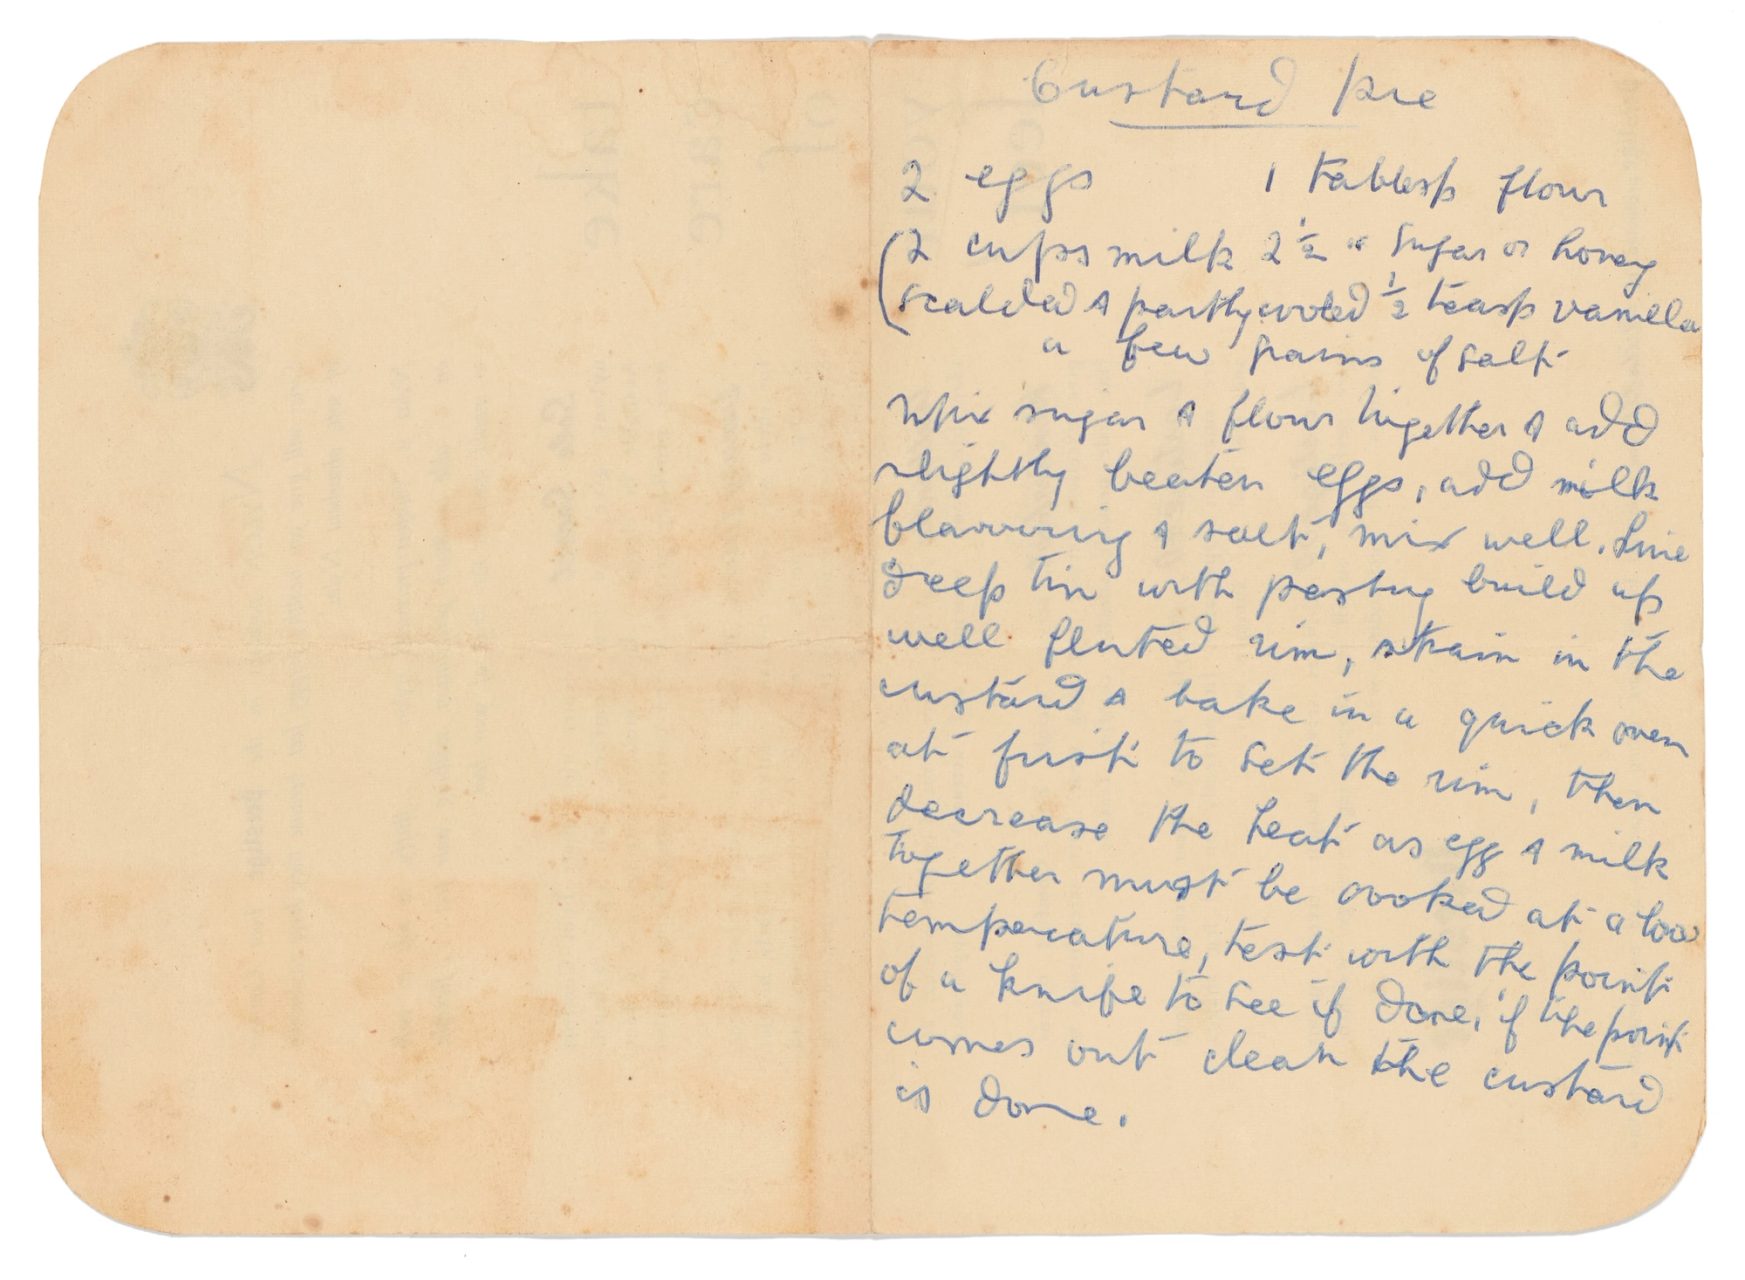 Custard Pie
2 eggs 1 tablesp flour
(2 cups milk 2 ½ " sugar or honey
(scalded & partly cooled ½ teasp vanilla
a few grains of salt
Mix sugar & flour together & add
slightly beaten eggs, add milk
flavouring & salt, mix well. Line
deep tin with pastry build up
well fluted rim, strain in the
custard & bake in a quick oven
at first to set the rim, then
decrease the heat as egg & milk
together must be cooked at a low
temperature, test with the point
of a knife to see if done, if the point
comes out clean the custard
is done.